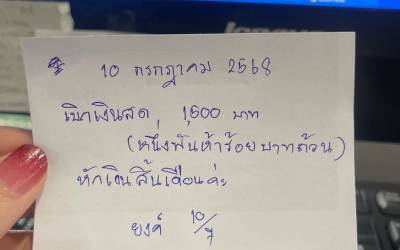 10 กรกฎาคม 2568
เบิกเงินสด 1,500 บาท
(หนึ่งพันห้าร้อยบาทถ้วน)
หักเงินสิ้นเดือนค่ะ
10/7